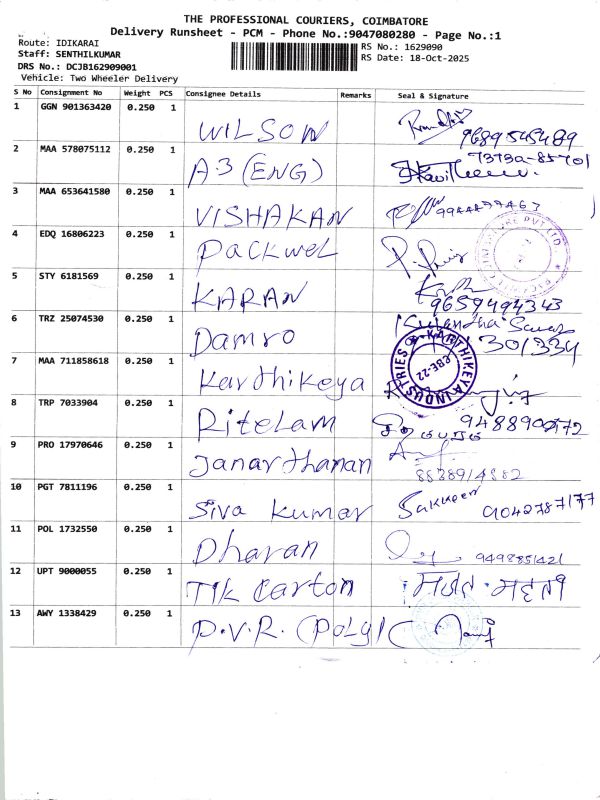 THE PROFESSIONAL COURIERS, COIMBATORE
Delivery Runsheet - PCM - Phone No.:9047080280 - Page No.:1
Route: IDIKARAI
Staff: SENTHILKUMAR
DRS No.: DCJB162909001
Vehicle: Two Wheeler Delivery
RS No.: 1629090
RS Date: 18-Oct-2025
S No Consignment No Weight PCS Consignee Details Remarks Seal & Signature
1 GGN 901363420 0.250 1 WILSON 9689545489
2 MAA 578075112 0.250 1 A3 (ENG)
3 MAA 653641580 0.250 1 VISHAKAN
4 EDQ 16806223 0.250 1 Packwel
5 STY 6181569 0.250 1 KARAN 9659494343
6 TRZ 25074530 0.250 1 Damro 301334
7 MAA 711858618 0.250 1 Karthikeya KARTHIKEYA INDUSTRIES CBE-22
8 TRP 7033904 0.250 1 Ritelam
9 PRO 17970646 0.250 1 Janarthanan
10 PGT 7811196 0.250 1 Siva kumar
11 POL 1732550 0.250 1 Dharan 9498851421
12 UPT 9000055 0.250 1 TIK Carton
13 AWY 1338429 0.250 1 P.V.R. (Poly)